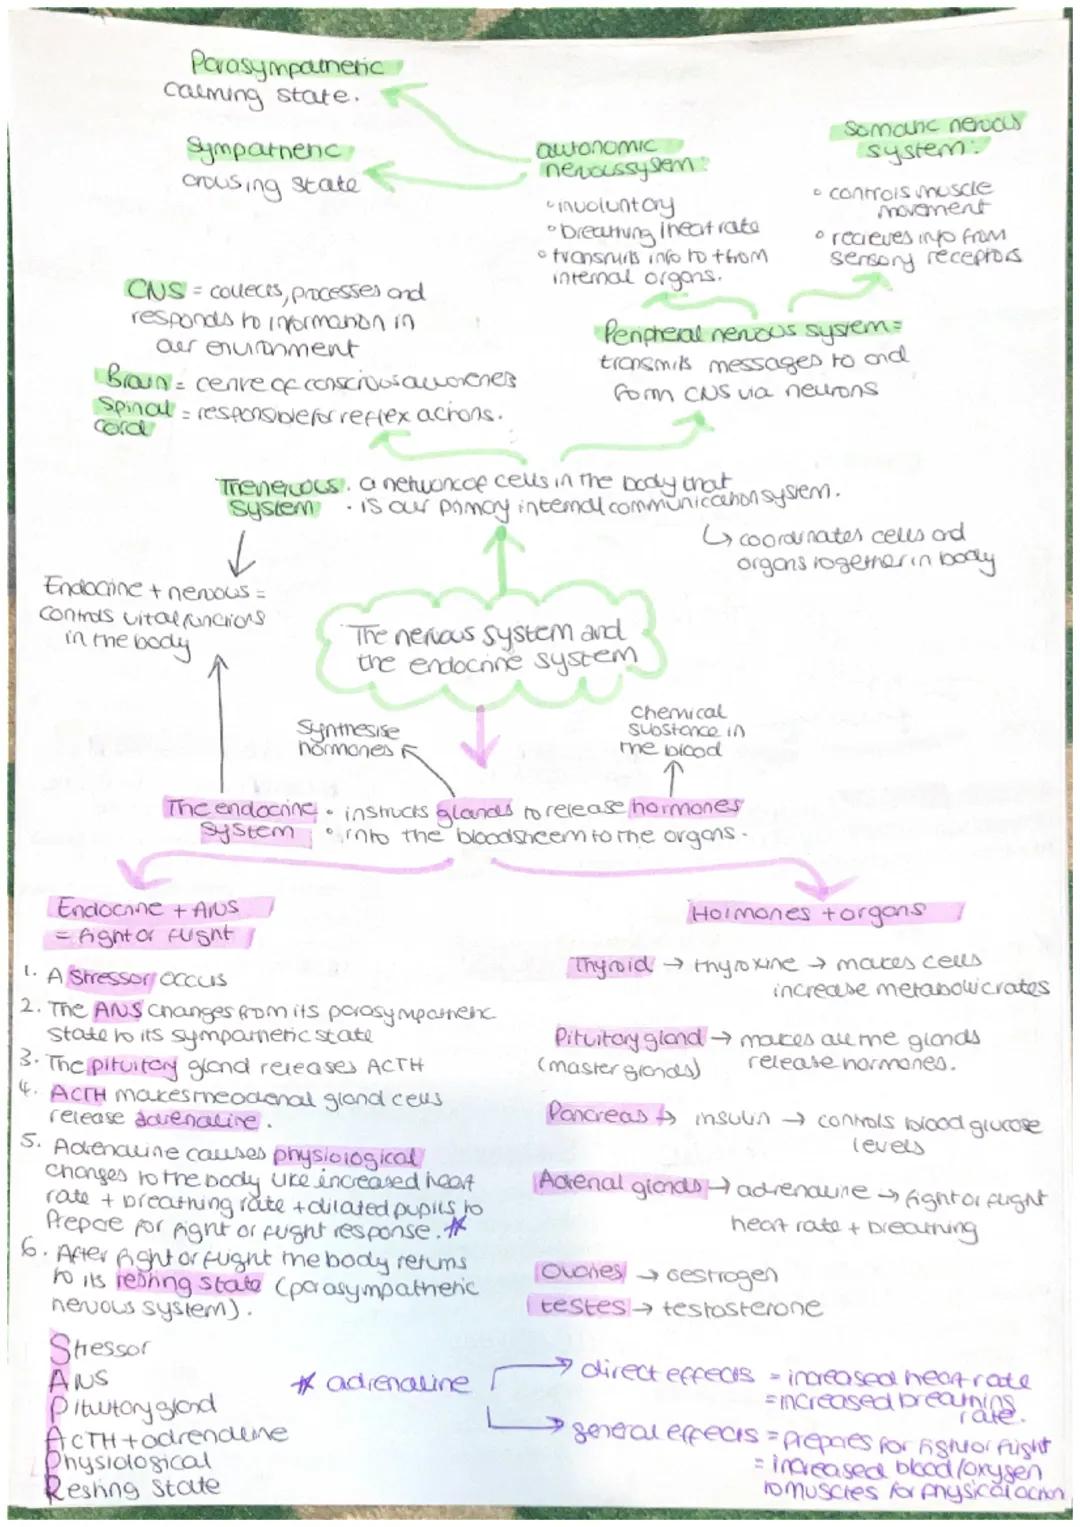 Parasympathetic
calming state.
Sympathetic
arousing state
autonomic
nervous system:
• involuntary
• breathing / heart rate
• transmits info to + from
internal organs.
Somatic nervous
system:
• controls muscle
movement
• recieves info from
sensory receptors
CNS = collects, processes and
responds to information in
our environment
Brain = centre of conscious awareness
Spinal
cord = responsible for reflex actions.
Peripheral nervous system =
transmits messages to and
form CNS via neurons
The nervous
system
• a network of cells in the body that
• is our primary internal communication system.
↳ coordinates cells and
organs together in body
Endocrine + nervous =
controls vital functions
in the body
The nervous system and
the endocrine system
Synthesise
hormones
chemical
substance in
the blood
The endocrine
system
• instructs glands to release hormones
• into the bloodstream to the organs.
Endocrine + ANS
= fight or flight
1. A Stressor occurs
2. The ANS changes from its parasympathetic
state to its sympathetic state
3. The pituitary gland releases ACTH
4. ACTH makes the adrenal gland cells
release adrenaline.
5. Adrenaline causes physiological
changes to the body like increased heart
rate + breathing rate + dilated pupils to
prepare for fight or flight response. *
6. After fight or flight the body returns
to its resting state (parasympathetic
nervous system).
Stressor
ANS
Pituitary gland
ACTH + adrenaline
Physiological
Resting State
Hormones + organs
Thyroid → thyroxine → makes cells
increase metabolic rates
Pituitary gland → makes all the glands
(master glands) release hormones.
Pancreas → insulin → controls blood glucose
levels
Adrenal glands → adrenaline → fight or flight
heart rate + breathing
Ovaries → oestrogen
testes → testosterone
* adrenaline
→ direct effects = increased heart rate
= increased breathing
rate.
→ general effects = prepares for fight or flight
= increased blood/oxygen
to muscles for physical action